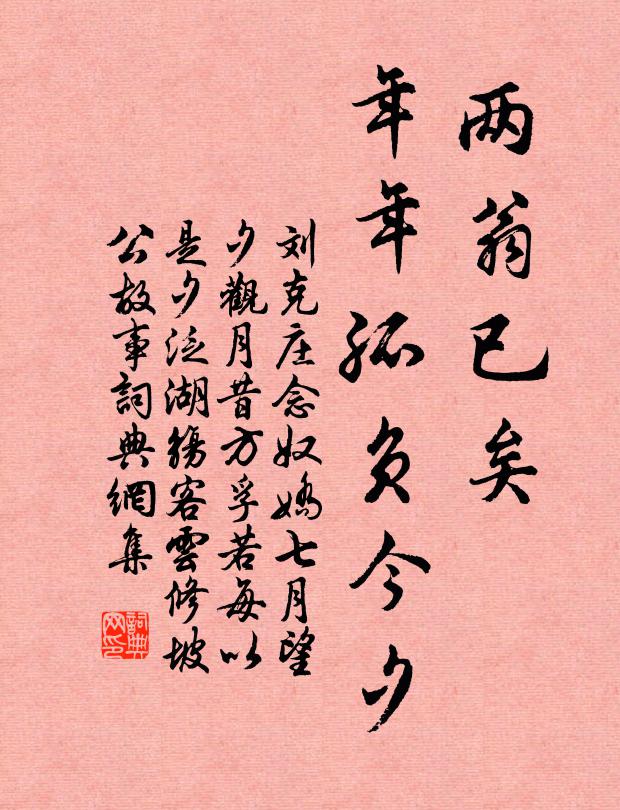 两翁已矣
年年孤负今夕
刘克庄念奴娇七月望
夕觀月昔方孚若每以
是夕泛湖觴客雲修坡
公故事詞典網集
詞典
网印